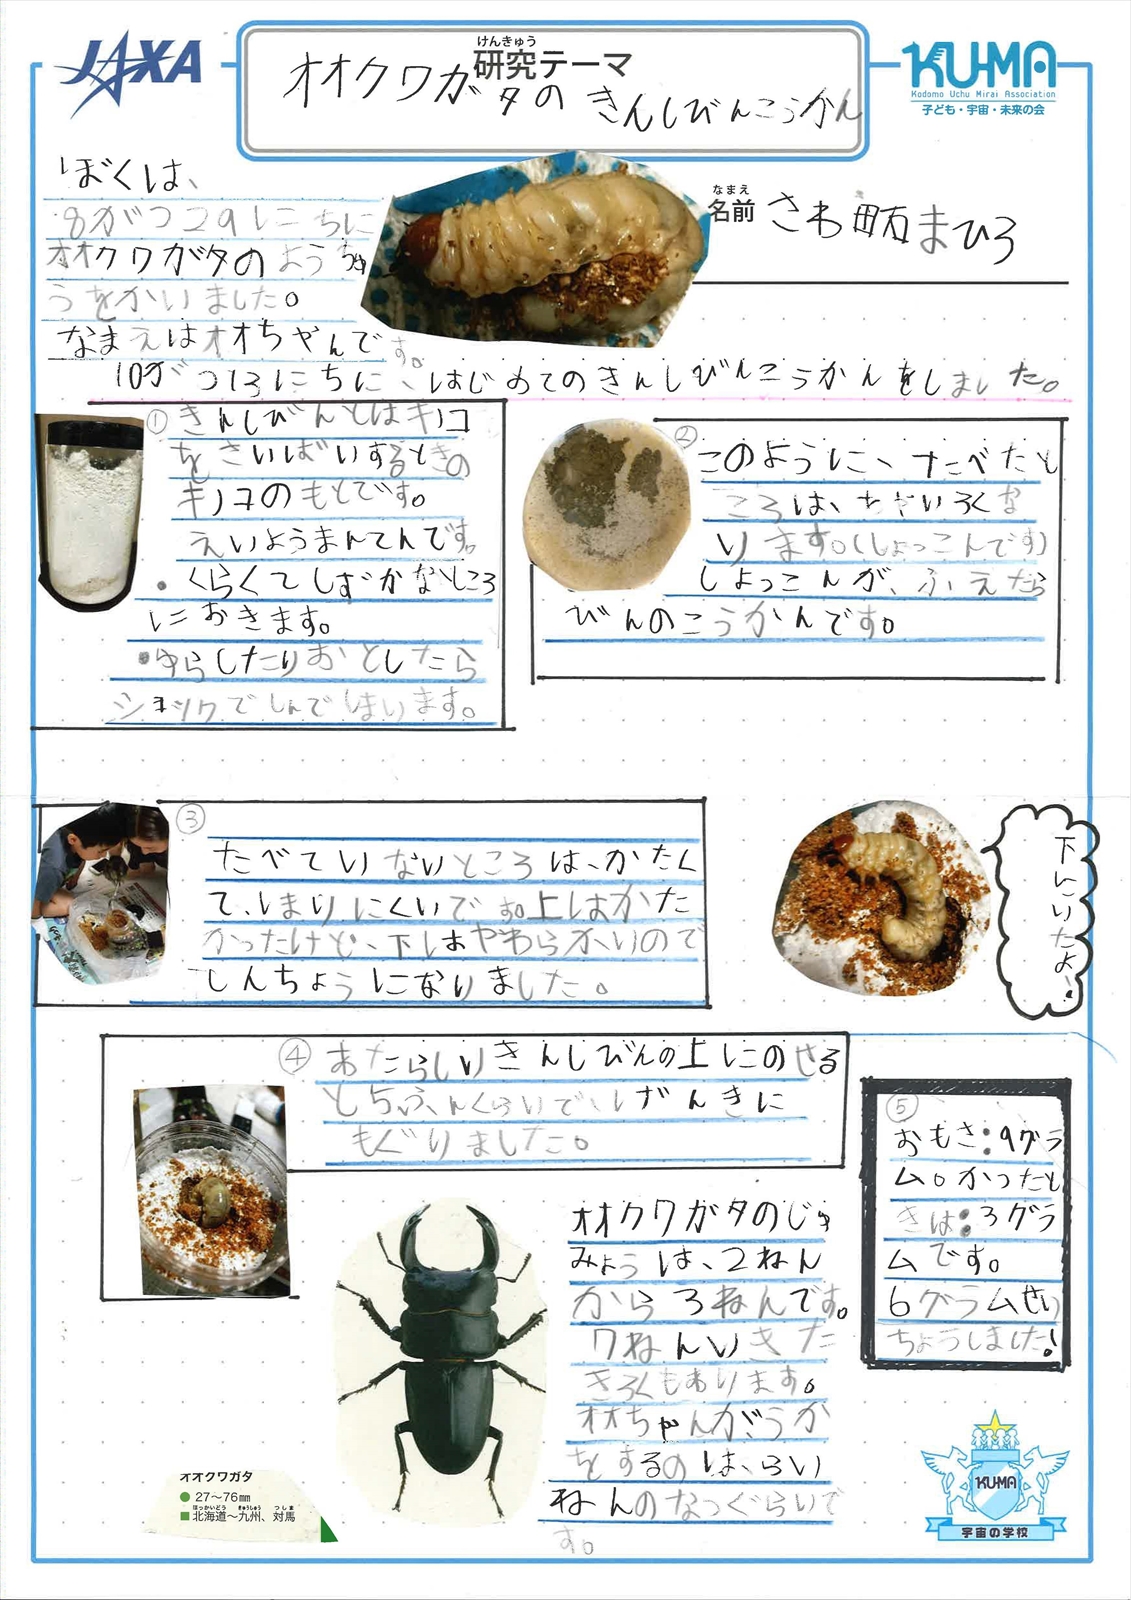 JAXA
けんきゅう
研究テーマ
オオクワガタの きんしびんこうかん
KU-MA
Kodomo Uchu Mirai Association
子ども・宇宙・未来の会
なまえ
名前
まひろ
ぼくは、
8がつ29にちに
オオクワガタのようちゅ
うをかいました。
なまえはオオちゃんです。
10がつ13にちに、はじめてのきんしびんこうかんをしました。
① きんしびんとはキノコ
をさいばいするときの
キノコのもとです。
えいようまんてんです。
・くらくてしずかなところ
におきます。
・ゆらしたりおとしたら
ショックでしんでしまいます。
② このように、たべたと
ころは、ちゃいろくな
ります。(しょっこんです)
しょっこんが、ふえたら
びんのこうかんです。
③
たべていないところは、かたく
て、しまりにくいです。上はかた
かったけど、下はやわらかいので
しんちょうになりました。
下にいたよ、!
④ あたらしいきんしびんの上にのせる
と5ふんくらいで、じぶんきに
もぐりました。
⑤
おもさ:9グラ
ム。かったと
きは:3グラ
ムです。
6グラムせい
ちょうしました!
オオクワガタのじゅ
みょうは、2ねん
から3ねんです。
7ねんいきた
きろくもあります。
オオちゃんがうか
をするのは、らい
ねんのなつぐらいで
す。
オオクワガタ
● 27〜76㎜
ほっかいどう きゅうしゅう つしま
■ 北海道〜九州、対馬
KU-MA
宇宙の学校